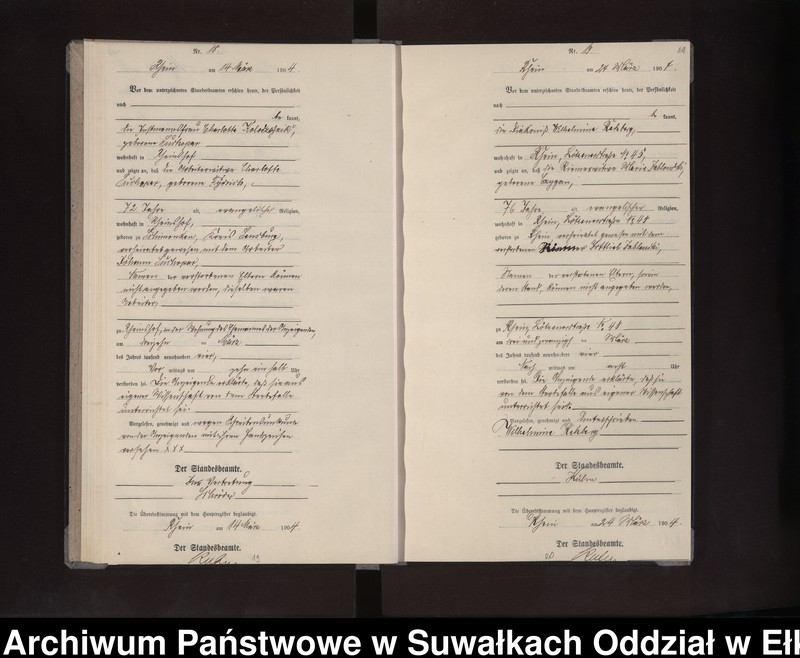 Nr. 18.
Rhein am 14 März 1904.
Vor dem unterzeichneten Standesbeamten erschien heute, der Persönlichkeit
nach
be kannt,
die Instmannsfrau Charlotte
geborene
wohnhaft in Rheinshof
und zeigte an, daß die Arbeiterwitwe Charlotte
geborene
72 Jahre alt, evangelischer Religion,
wohnhaft in Rheinshof,
geboren zu Kreis Sensburg,
verheiratet gewesen mit dem Arbeiter
Johann
Namen der verstorbenen Eltern können
nicht angegeben werden, dieselben waren
Arbeiter,
zu Rheinshof, in der Wohnung des Ehemannes der Anzeigenden,
am dreizehn ten März
des Jahres tausend neunhundert vier,
Vor mittags um zehn ein halb Uhr
verstorben sei. Die Anzeigende erklärte, daß sie aus
eigener Wissenschaft von dem Sterbefalle
unterrichtet sei.
Vorgelesen, genehmigt und wegen Schreibensunkunde
von der Anzeigenden mit ihrem Handzeichen
versehen XXX
Der Standesbeamte.
In Vertretung
Schröder
Die Übereinstimmung mit dem Hauptregister beglaubigt.
Rhein am 14 März 1904
Der Standesbeamte.
19
Nr. 19
Rhein am 24 März 1904.
Vor dem unterzeichneten Standesbeamten erschien heute, der Persönlichkeit
nach
be kannt,
die Diakonisse Wilhelmine Rehberg,
wohnhaft in Rhein, Lötzenerstraße № 45,
und zeigte an, daß die Riemerwitwe Marie Jablonski,
geborene
76 Jahre alt, evangelischer Religion,
wohnhaft in Rhein, Lötzenerstraße № 48
geboren zu Rhein verheiratet gewesen mit dem
verstorbenen Riemer Gottlieb Jablonski,
Namen der verstorbenen Eltern, sowie
deren Stand, können nicht angegeben werden,
zu Rhein, Lötzenerstraße № 48
am drei und zwanzigsten März
des Jahres tausend neunhundert vier
Nach mittags um acht Uhr
verstorben sei. Die Anzeigende erklärte, daß sie
von dem Sterbefalle aus eigener Wissenschaft
unterrichtet sei.
Vorgelesen, genehmigt und unterschrieben
Wilhelmine Rehberg
Der Standesbeamte.
Die Übereinstimmung mit dem Hauptregister beglaubigt.
Rhein am 24 März 1904.
Der Standesbeamte.
20
Archiwum Państwowe w Suwałkach Oddział w Ełk